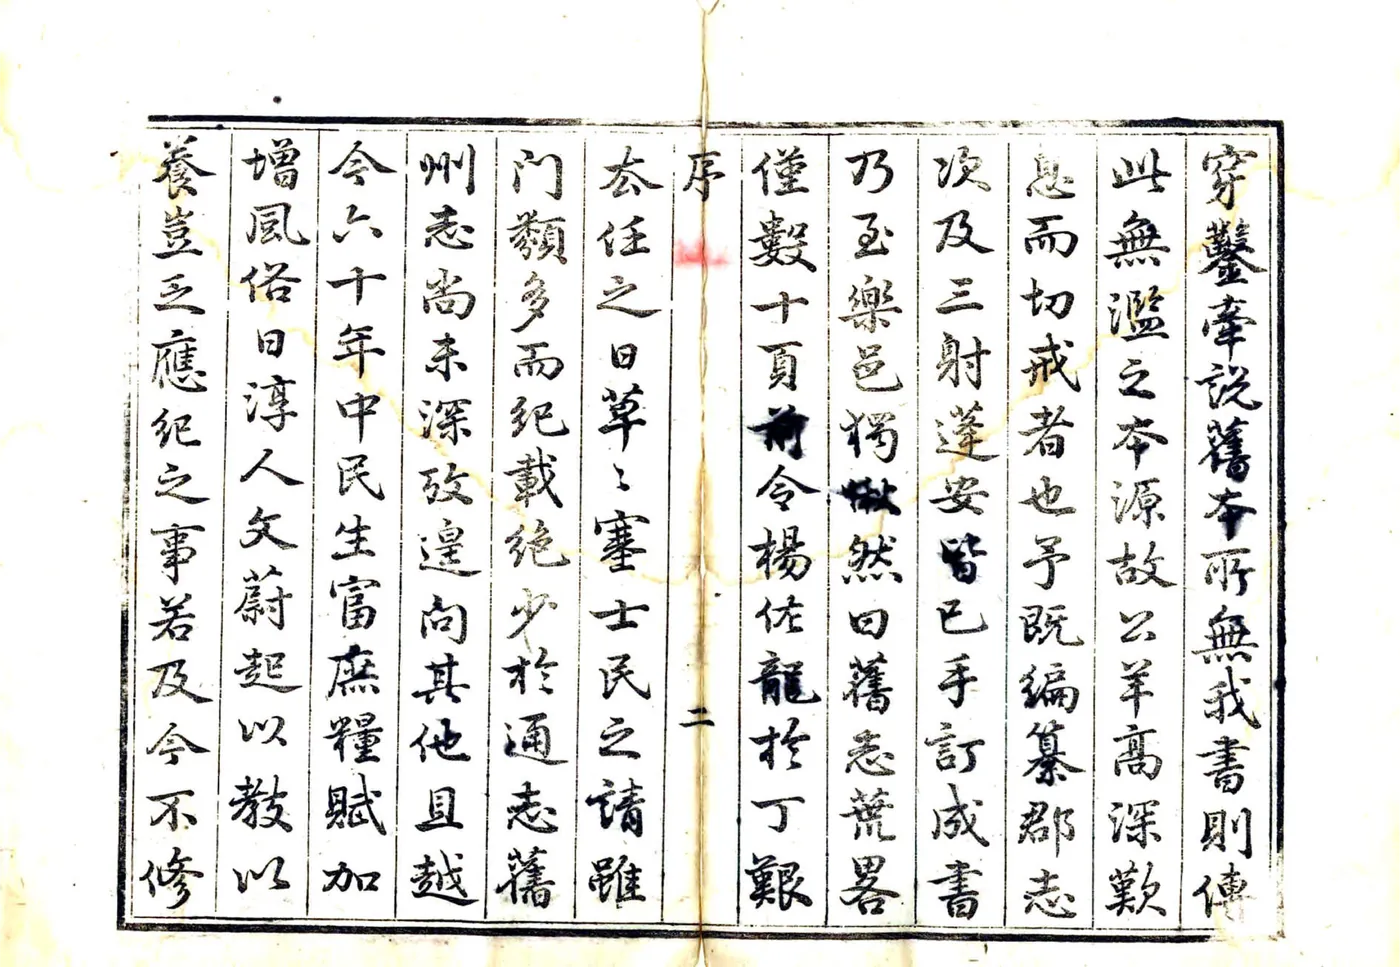 穿鑿牽說舊本所無我書則傳
此無濫之本源故公羊高深歎
息而切戒者也予既編纂郡志
次及三射蓬安皆已手訂成書
乃至樂邑獨愀然曰舊志荒畧
僅數十頁前令楊佐龍於丁艱
序
二
去任之日草〻塞士民之請雖
門類多而紀載絶少於通志舊
州志尚未深攷遑问其他且越
今六十年中民生富庶糧賦加
增風俗日淳人文蔚起以教以
養豈乏應紀之事若及今不修